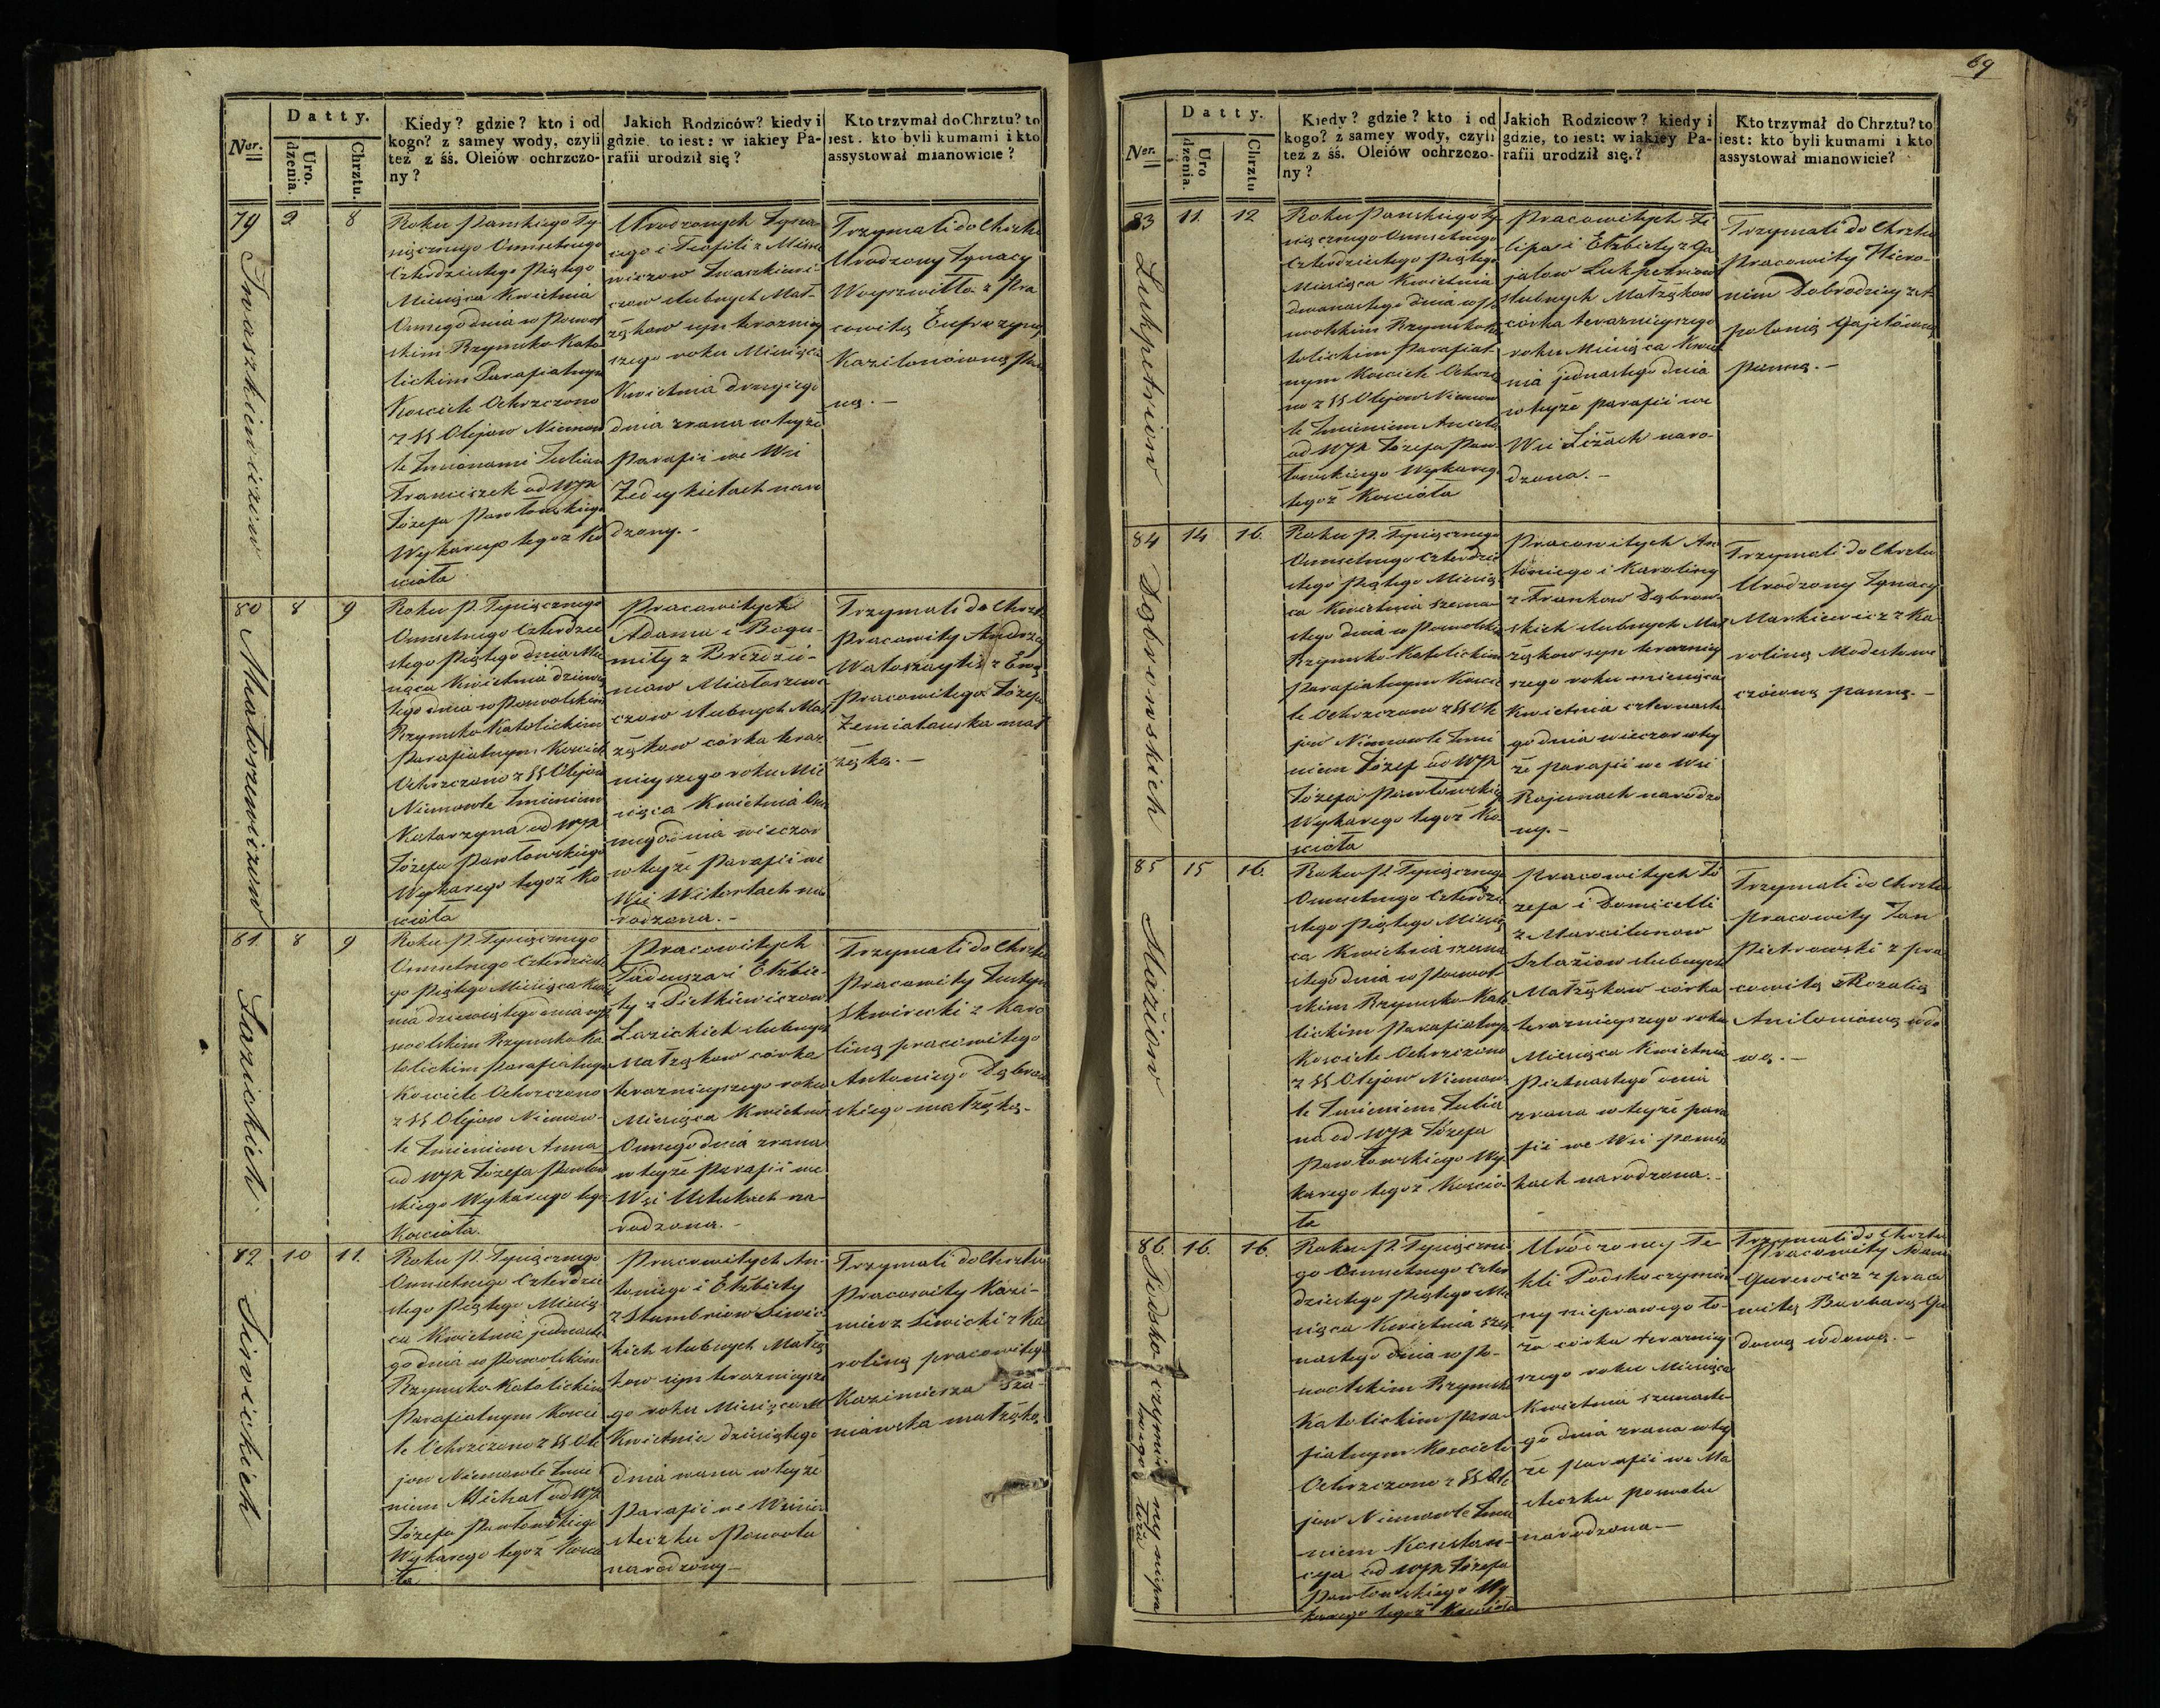 69
Datty.
Ner.
Uro.
dzenia.
Chrztu.
Kiedy? gdzie? kto i od
kogo? z samey wody, czyli
też z śś. Oleiów ochrzczo-
ny?
Jakich Rodziców? kiedy i
gdzie, to iest: w iakiey Pa-
rafii urodził się?
Kto trzymał do Chrztu? to
iest. kto byli kumami i kto
assystował mianowicie?
79
2
8
Iwaszkiewiczow
Roku Panskiego Ty-
siącznego Osmsetnego
Czterdziestego Piątego
Miesiąca Kwietnia
Osmego dnia w Powol
skim Rzymsko Kato
lickim Parafialnym
Kosciele Ochrzczono
z SS Olejow Niemow
le Imionami Julian
Franciszek od WJX
Józefa Pawłowskiego
Wykarego tegoż Ko
scioła
Urodzonych Igna-
cego i Teofili z
Iwaszkiewi-
czow slubnych Mał-
żąkow syn terazniey
szego roku Miesiąca
Kwietnia drugiego
dnia zrana w teyże
Parafii we Wsi
naro
dzony.-
Trzymali do Chrztu
Urodzony Ignacy
Woyszwiłło z Pra
cowitą Eufrozyną
Pan
ną.-
80
8
9
Matoszewiczow
Roku P. Tysiącznego
Osmsetnego Czterdzie
stego Piątego dnia Mie
siąca Kwietnia dziewią
tego dnia w Powolskim
Rzymsko Katolickim
Parafialnym Kosciele
Ochrzczono z SS Olejow
Niemowle Imieniem
Katarzyna od WJX
Józefa Pawłowskiego
Wykarego tegoż Ko
scioła
Pracowitych
Adama i Bogu-
miły z
czow slubnych Mał
żąkow córka teraz
nieyszego roku Mie
siąca Kwietnia Os
mego dnia wieczor
w teyże Parafii we
Wsi Witortach na
rodzona.-
Trzymali do Chrztu
Pracowity Andrzey
z Ewą
Pracowitego Józefa
mał
żąką.-
81
8
9
Łazickich
Roku P. Tysiącznego
Osmsetnego Czterdzieste
go Piątego Miesiąca Kwiet
nia dziewiątego dnia w Po
wolskim Rzymsko Ka
tolickim Parafialnym
Kosciele Ochrzczono
z SS Olejow Niemow-
le Imieniem Anna
od WJX Józefa Pawłow
skiego Wykarego tegoż
Kościoła.
Pracowitych
Tadeusza i Elżbie-
ty z Pietkiewiczow
Łazickich slubnych
Małżąkow córka
teraznieyszego roku
Miesiąca Kwietnia
Osmego dnia zrana
w teyże Parafii we
Wsi Ustukach na-
rodzona.-
Trzymali do Chrztu
Pracowity Justyn
Skwirecki z Karo
liną pracowitego
Antoniego Dąbrow
skiego małżąką.-
82
10
11.
Siwickich
Roku P. Tysiącznego
Osmsetnego Czterdzie
stego Piątego Miesią
ca Kwietnia jednaste
go dnia w Powolskim
Rzymsko Katolickim
Parafialnym Koscie
le Ochrzczono z SS Ole
jow Niemowle Imie
niem Michał od WJX
Józefa Pawłowskiego
Wykarego tegoż Koscio
ła
Pracowitych An-
toniego i Elżbiety
z Stumbriow Siwic-
kich slubnych Małżą
kow syn terazniejsze
go roku Miesiąca
Kwietnia dziesiątego
dnia zrana w teyże
Parafii we
steczku Powolu
narodzony-
Trzymali do Chrztu
Pracowity Kazi-
mierz Siwicki z Ka
roliną pracowitego
Kazimierza
małżąką
Datty.
Ner.
Uro
dzenia.
Chrztu
Kiedy? gdzie? kto i od
kogo? z samey wody, czyli
tez z śś. Oleiów ochrzczo-
ny?
Jakich Rodzicow? kiedy i
gdzie, to iest: w iakiey Pa-
rafii urodził się.?
Kto trzymał do Chrztu? to
iest: kto byli kumami i kto
assystował mianowicie?
83
11.
12
Lukpetriow
Roku Panskiego Ty-
siącznego Osmsetnego
Czterdziestego Piątego
Miesiąca Kwietnia
dwunastego dnia w Po
wolskim Rzymsko Ka
tolickim Parafial-
nym Kosciele Ochrzczo
no z SS Olejow Niemow
le Imieniem Aniela
od WJX Józefa Paw-
łowskiego Wykarego
tegoż Kościoła
Pracowitych Fi
lipa i Elżbiety z Ga
jalow Lukpetriow
slubnych Małżąkow
córka terazniejszego
roku Miesiąca Kwiet
nia jednastego dnia
w teyże parafii we
Wsi naro-
dzona.-
Trzymali do Chrztu
Pracowity Hiero-
nim Dobrodziey z A
polonią
panną.-
84
14
16.
Dąbrowskich
Roku P. Tysiącznego
Osmsetnego Czterdzie
stego Piątego Miesią
ca Kwietnia szesna-
stego dnia w Powolskim
Rzymsko Katolickim
Parafialnym Koscie
le Ochrzczono z SS Ole
jow Niemowle Imie
niem Józef od WJX
Józefa Pawłowskiego
Wykarego tegoż Ko
scioła
Pracowitych An
toniego i Karoliny
z Frankow Dąbrow-
skich slubnych Mał
żąkow syn terazniey
szego roku miesiąca
Kwietnia czternaste
go dnia wieczor w tey
że parafii we Wsi
Rajunach narodzo
ny.-
Trzymali do Chrztu
Urodzony Ignacy
Markiewicz z Ka
roliną Modestowi
czówną panną.-
85
15
16.
Szlaźiow
Roku P. Tysiącznego
Osmsetnego Czterdzie
stego Piątego Miesią
ca Kwietnia szesna
stego dnia w Powol-
skim Rzymsko-Kato
lickim Parafialnym
Kosciele Ochrzczono
z SS Olejow Niemow-
le Imieniem Julia
na od WJX Józefa
Pawłowskiego Wy-
karego tegoż Koscio
ła
Pracowitych Jó
zefa i Domicelli
z Marcilunow
Szlaźiow slubnych
Małżąkow córka
terazniejszego roku
Miesiąca Kwietnia
Pietnastego dnia
zrana w teyże para
fii we Wsi
kach narodzona.-
Trzymali do Chrztu
pracowity Jan
Pietrowski z pra
cowitą Rozalią
wdo
wą.-
86.
16.
16.
Podskoczymówny niepra
wego łoża
Roku P. Tysiączne
go Osmsetnego Czter
dziestego Piątego Mie
siąca Kwietnia szes
nastego dnia w Po-
wolskim Rzymsko
Katolickim Para-
fialnym Kosciele
Ochrzczono z SS Ole
jow Niemowle Imie
niem Konstan-
cya od WJX Józefa
Pawłowskiego Wy
karego tegoż Kościoła
Urodzoney Te-
kli Podskoczymow
ny nieprawego ło-
ża córka terazniey
szego roku Miesiąca
Kwietnia szesnaste-
go dnia zrana w tey
że parafii we Mia
steczku Powolu
narodzona.-
Trzymali do Chrztu
Pracowity Adam
Gurewicz z praco
witą Barbarą
wdową.-